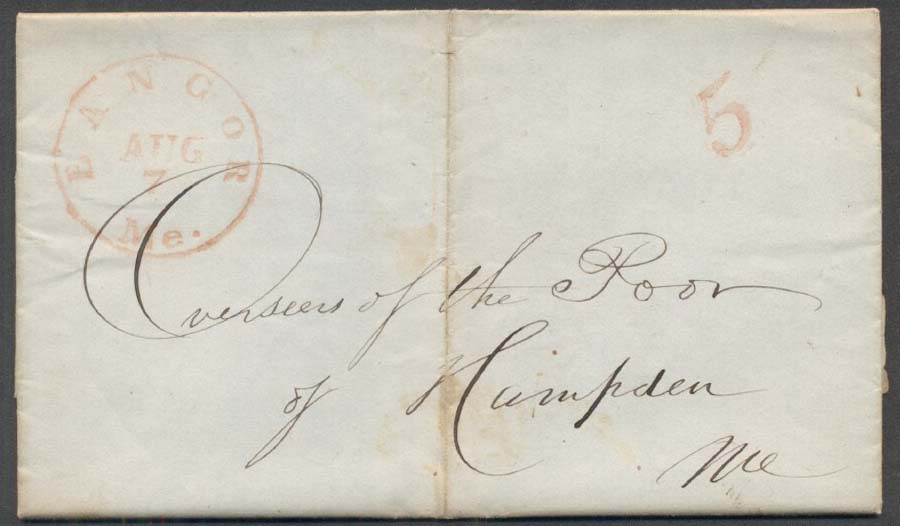 BANGOR
AUG
7
Me.
5
Overseers of the Poor
of Hampden
Me